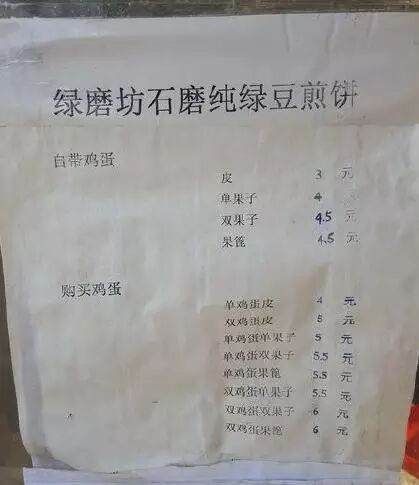 绿磨坊石磨纯绿豆煎饼
自带鸡蛋
皮 3 元
单果子 4 元
双果子 4.5 元
果篦 4.5 元
购买鸡蛋
单鸡蛋皮 4 元
双鸡蛋皮 5 元
单鸡蛋单果子 5 元
单鸡蛋双果子 5.5 元
单鸡蛋果篦 5.5 元
双鸡蛋单果子 5.5 元
双鸡蛋双果子 6 元
双鸡蛋果篦 6 元